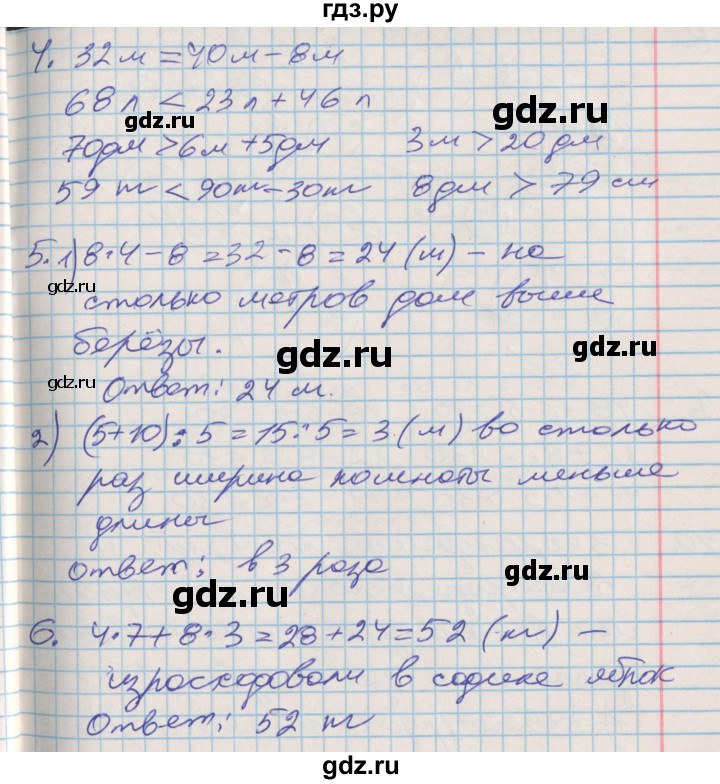 гдз.ру
4. 32 м = 40 м - 8 м
68 л < 23 л + 46 л
gdz.ru
gdz.ru
70дм > 6м + 5дм 3м > 20 дм
59 кг < 90кг - 30кг 8дм > 79 см
5. 1) 8·4 - 8 = 32 - 8 = 24 (м) - на
gdz.ru
столько метров дом выше
берёзы.
gdz.ru
gdz.ru
gdz.ru
Ответ: 24 м.
2) (5+10) : 5 = 15 : 5 = 3 (м) во столько
раз ширина комнаты меньше
длины
gdz.ru
Ответ: в 3 раза
gdz.ru
6. 4·7 + 8·3 = 28 + 24 = 52 (кг) -
израсходовали в садике яблок
gdz.ru
gdz.ru
Ответ: 52 кг